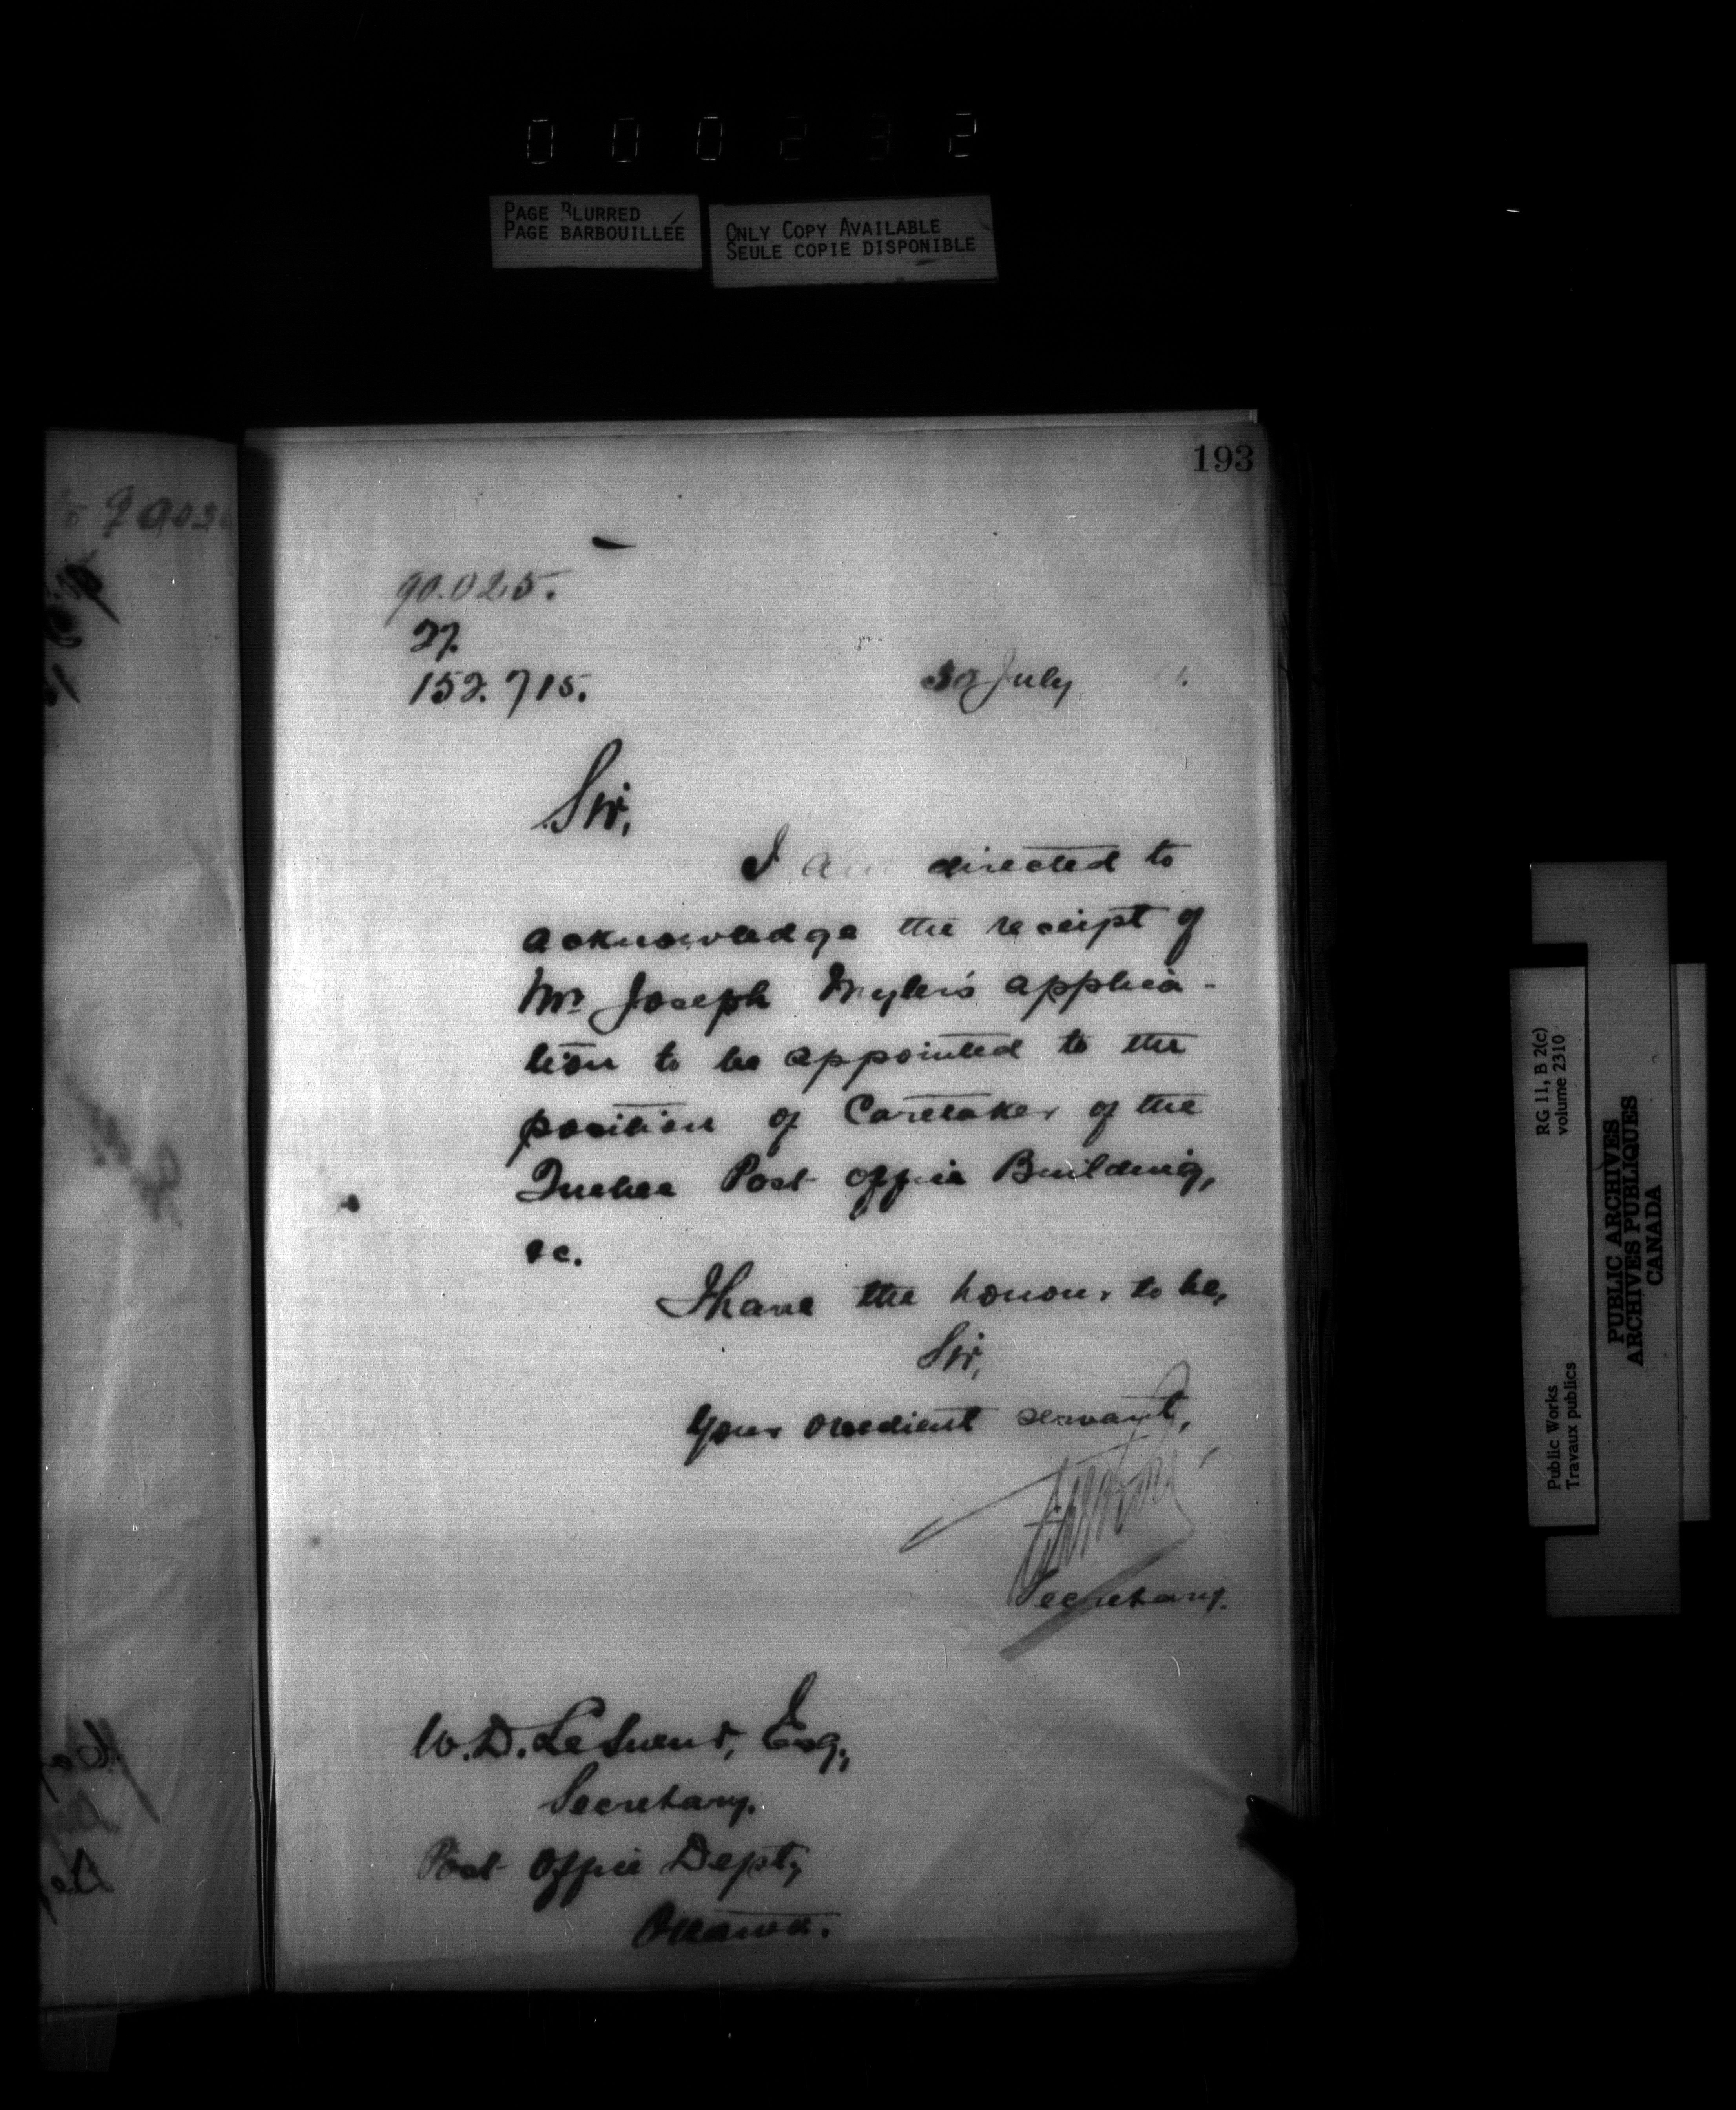 000232
PAGE BLURRED
PAGE BARBOUILLÉE
ONLY COPY AVAILABLE
SEULE COPIE DISPONIBLE
193
90.025.
27.
152.715.
30 July
Sir,
I am directed to
acknowledge the receipt of
Mr. Joseph Myler's applica-
tion to be appointed to the
position of Caretaker of the
Quebec Post Office Building,
&c.
I have the honour to be,
Sir,
Your obedient servant,
Secretary.
W.D. LeSueur, Esq.,
Secretary.
Post Office Dept,
Ottawa.
RG 11, B 2(c)
volume 2310
Public Works
Travaux publics
PUBLIC ARCHIVES
ARCHIVES PUBLIQUES
CANADA